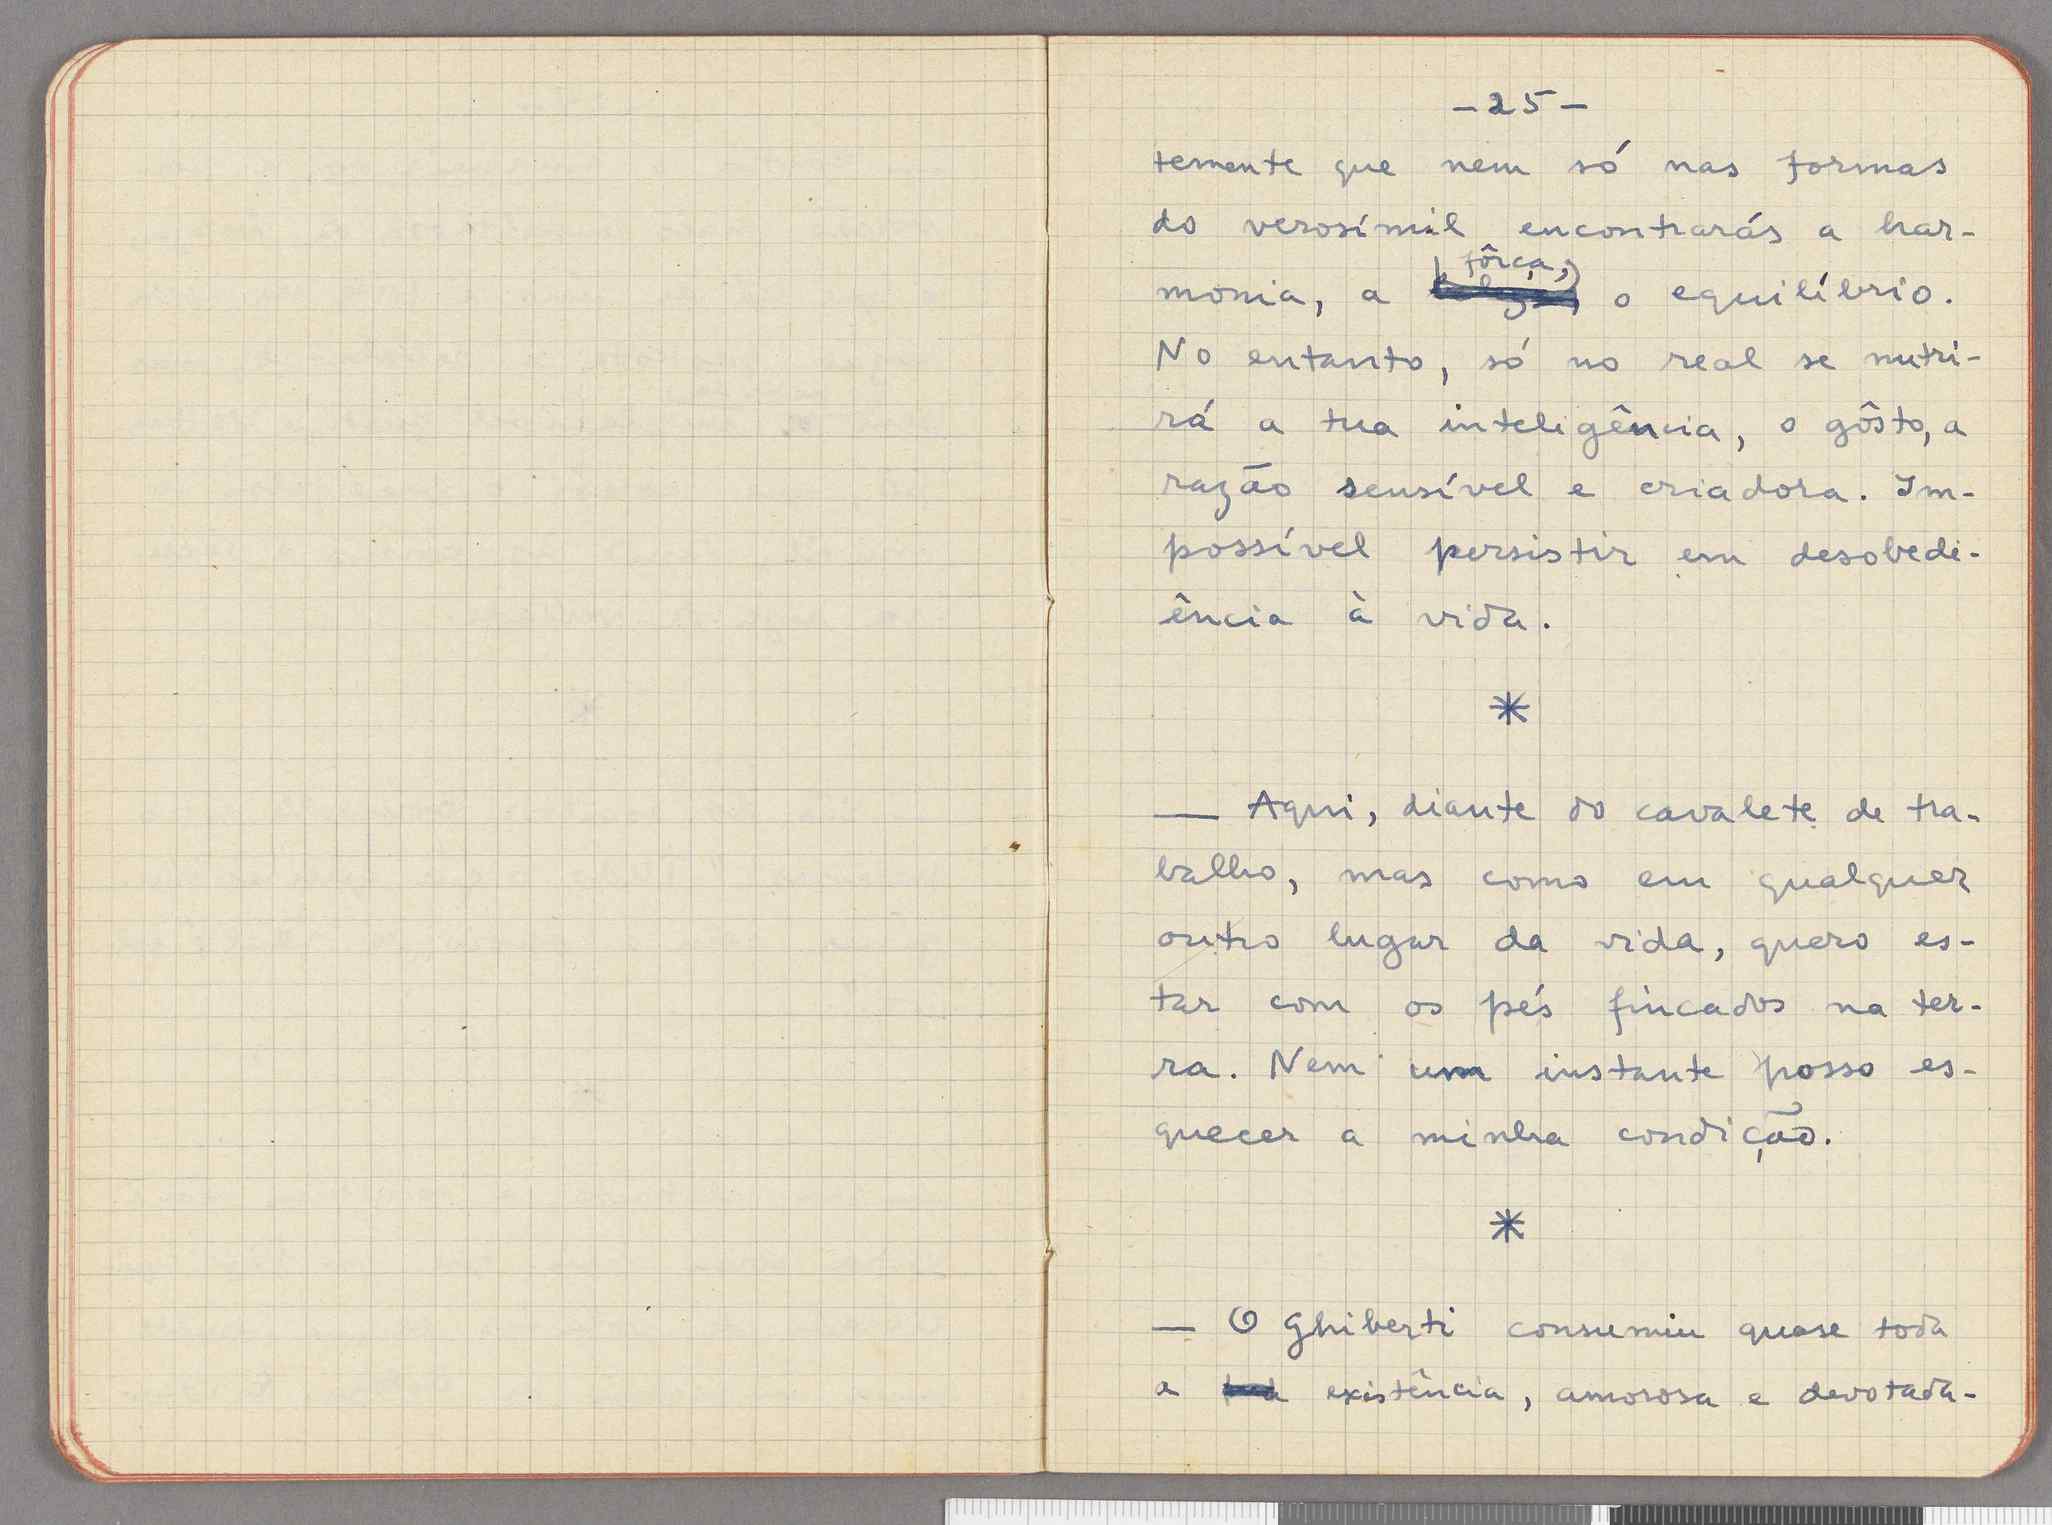 -25-
temente que nem só nas formas
do verosímil encontrarás a har-
fôrça,
monia, a o equilíbrio.
No entanto, só no real se nutri-
rá a tua inteligência, o gôsto, a
razão sensível e criadora. Im-
possível persistir em desobedi-
ência à vida.
*
— Aqui, diante do cavalete de tra-
balho, mas como em qualquer
outro lugar da vida, quero es-
tar com os pés fincados na ter-
ra. Nem um instante posso es-
quecer a minha condição.
*
— O Ghiberti consumiu quase toda
a existência, amorosa e devotada-